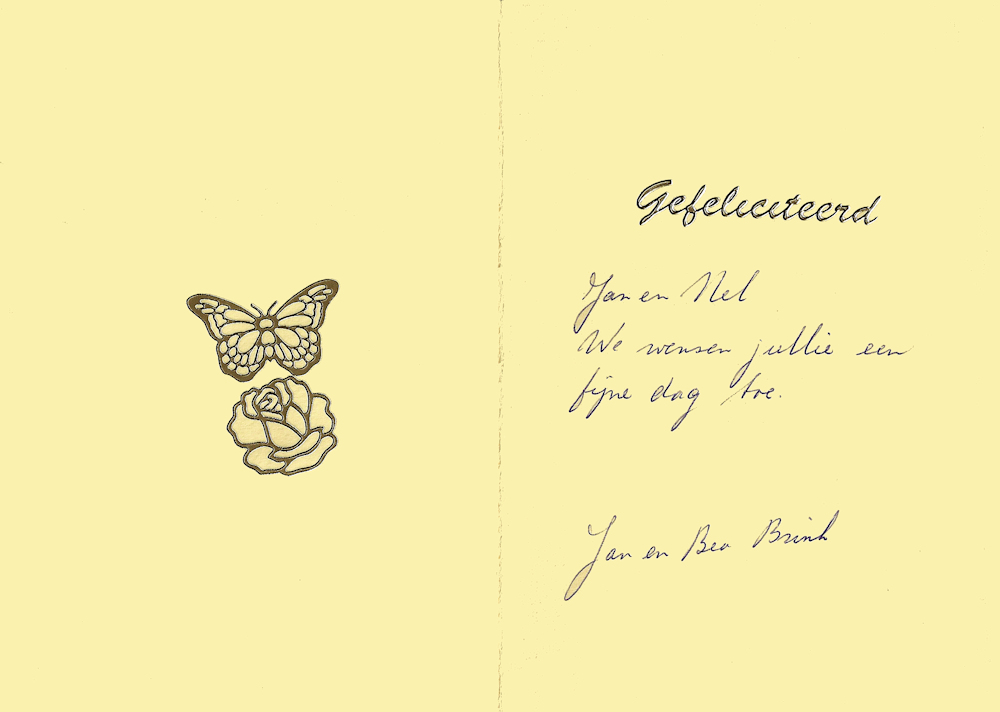 Gefeliciteerd
Jan en Nel
We wensen jullie een
fijne dag toe.
Jan en Bea Brink